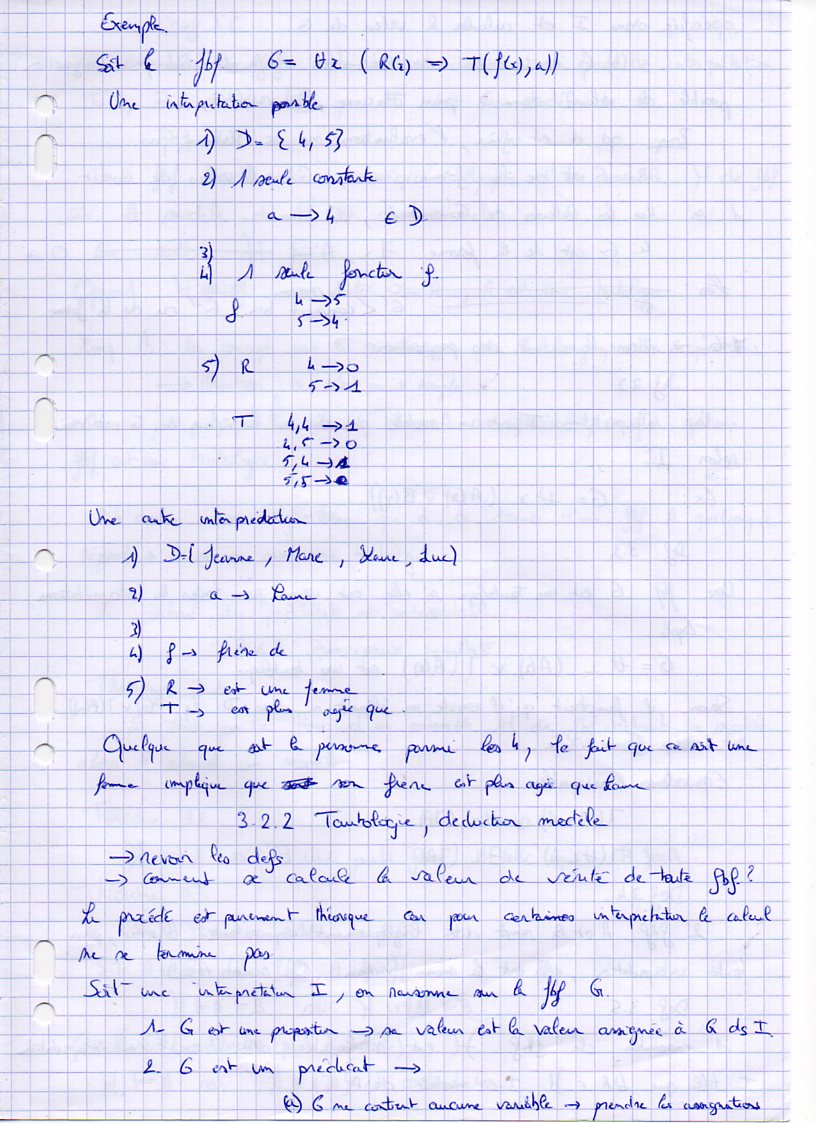 Exemple.
Soit la fbf G = ∀x ( R(x) => T(f(x), a))
Une interpretation possible
1) D = { 4, 5}
2) 1 seule constante
a → 4 ∈ D
3)
4) 1 seule fonction f.
4 → 5
f
5 → 4
5) R 4 → 0
5 → 1
T 4,4 → 1
4,5 → 0
5,4 → 1
5,5 → 0
Une autre interprédation
1) D = { Jeanne, Marc, Laure, Luc}
2) a → Laure
3)
4) f → frère de
5) R → est une femme
T → est plus agée que.
Quelque que soit la personne parmi les 4, le fait que ce soit une
femme implique que son frère est plus agée que Laure
3.2.2 Tautologie, deduction modele
→ revoir les defs
→ comment se calcule la valeur de vérité de toute fbf ?
Le procédé est purement théorique car pour certaines interpretation le calcul
ne se termine pas
Soit une interpretation I, on raisonne sur la fbf G.
1- G est une proposition → sa valeur est la valeur assignée à G ds I.
2- G est un prédicat →
(a) G ne contient aucune variable → prendre les assignations